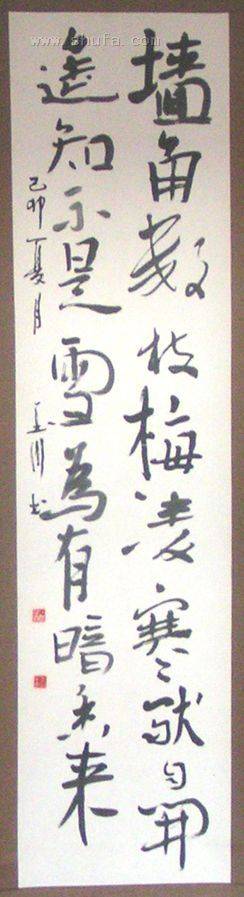 www.shufa.com
墙角數枝梅凌寒獨自開
遙知不是雪為有暗香来
己卯夏月